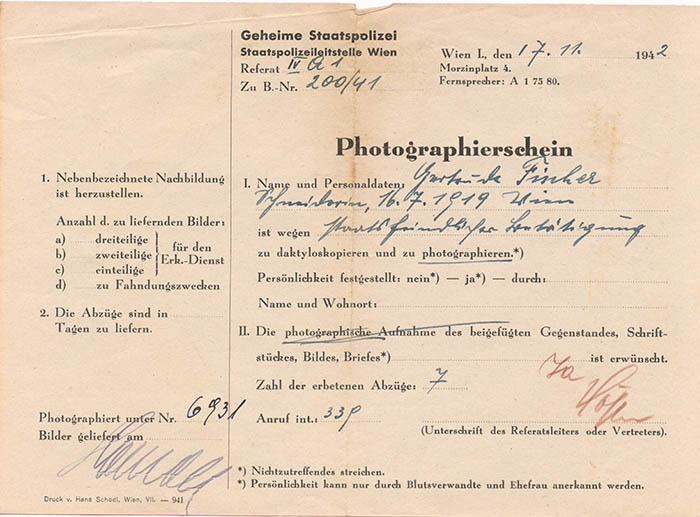 Geheime Staatspolizei
Staatspolizeileitstelle Wien
Referat IV A 1
Zu B.-Nr. 200/41
Wien I., den 17. 11. 1942
Morzinplatz 4.
Fernsprecher: A 1 75 80.
Photographierschein
1. Nebenbezeichnete Nachbildung
ist herzustellen.
Anzahl d. zu liefernden Bilder:
a) dreiteilige
b) zweiteilige
c) einteilige
für den
Erk.-Dienst
d) zu Fahndungszwecken
2. Die Abzüge sind in
Tagen zu liefern.
Photographiert unter Nr. 6931
Bilder geliefert am
Druck v. Hans Schodl, Wien, VII. — 941
I. Name und Personaldaten: Gertrude Fischer
Schneiderin, 16.7.1919 Wien
ist wegen staatsfeindlicher Betätigung
zu daktyloskopieren und zu photographieren.*)
Persönlichkeit festgestellt: nein*) — ja*) — durch:
Name und Wohnort:
II. Die photographische Aufnahme des beigefügten Gegenstandes, Schrift-
stückes, Bildes, Briefes*) ist erwünscht.
Zahl der erbetenen Abzüge: 7
Anruf int.: 339
Ja
(Unterschrift des Referatsleiters oder Vertreters).
*) Nichtzutreffendes streichen.
*) Persönlichkeit kann nur durch Blutsverwandte und Ehefrau anerkannt werden.